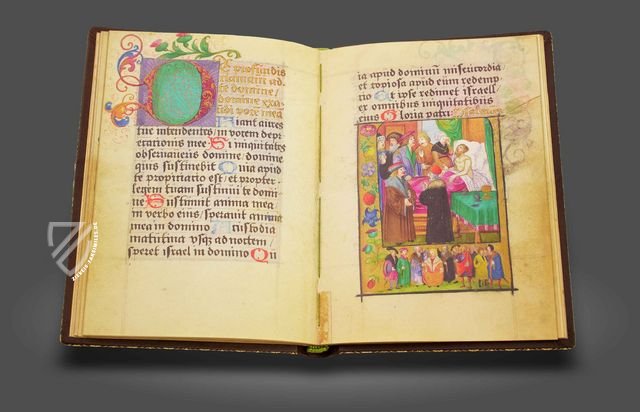 De profundis
clamavi ad
te domine
domine exa
udi vocem mea
Fiant aures
tue intendentes, in vocem depr
ecationis mee Si iniquitates
observaveris domine, domine
quis sustinebit Quia apud
te propiciatio est, et propter
legem tuam sustinui te domi
ne Sustinuit anima mea
in verbo eius, speravit anima
mea in domino A custodia
matutina usq; ad noctem,
speret israel in domino Qu
ia apud dominū misericordia,
et copiosa apud eum redemp
tio Et ipse redimet israel
ex omnibus iniquitatibus
eius Gloria patri
ZIEREIS-FAKSIMILES.DE